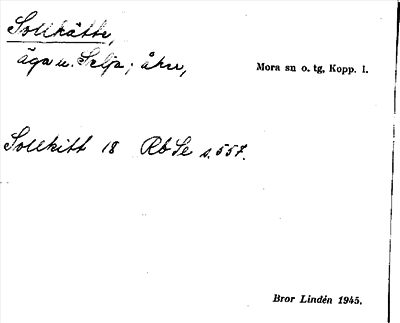 Sollkätte,
äga u. Selja; åker,
Mora sn o. tg, Kopp. l.
Sollkitt 18 Rb Se s. 557.
Bror Lindén 1945.